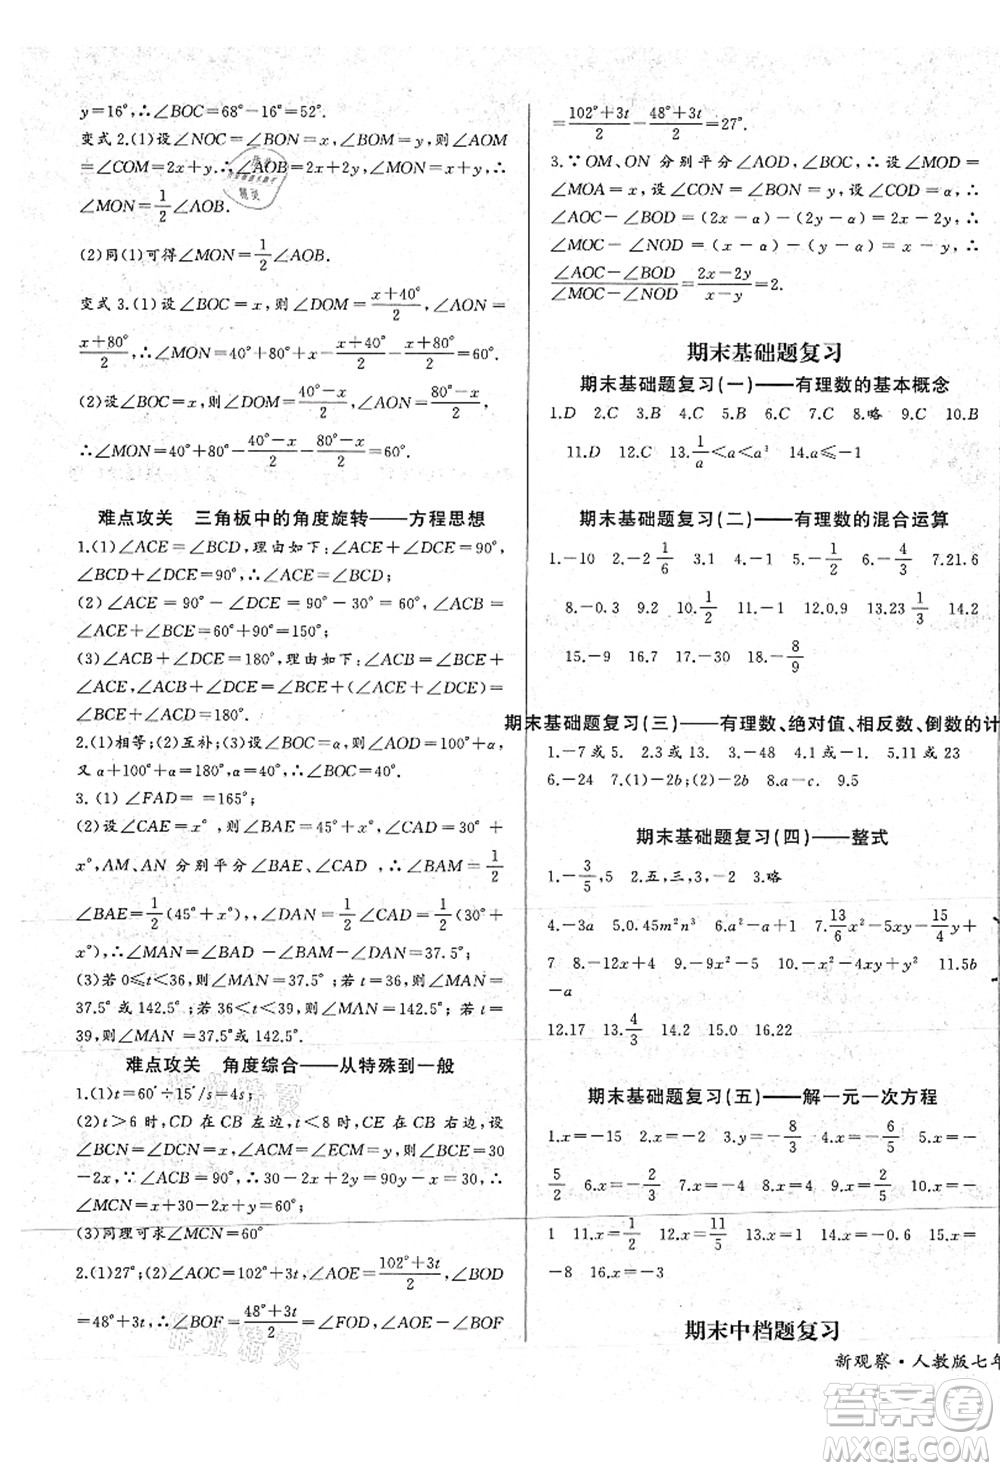 y=16°,∴∠BOC=68°-16°=52°.
变式 2.(1)设∠NOC=∠BON=x,∠BOM=y,则∠AOM
=∠COM=2x+y.∴∠AOB=2x+2y,∠MON=x+y,∴
∠MON=1/2∠AOB.
(2)同(1)可得∠MON=1/2∠AOB.
变式 3.(1)设∠BOC=x,则∠DOM=(x+40°)/2,∠AON=
(x+80°)/2,∴∠MON=40°+80°-(x+40°)/2-(x+80°)/2+x=60°.
(2)设∠BOC=x,则∠DOM=(40°-x)/2,∠AON=(80°-x)/2,
∴∠MON=40°+80°-(40°-x)/2-(80°-x)/2-x=60°.
难点攻关 三角板中的角度旋转——方程思想
1.(1)∠ACE=∠BCD,理由如下:∵∠ACE+∠DCE=90°,
∠BCD+∠DCE=90°,∴∠ACE=∠BCD;
(2)∠ACE=90°-∠DCE=90°-30°=60°,∠ACB=
∠ACE+∠BCE=60°+90°=150°;
(3)∠ACB+∠DCE=180°,理由如下:∵∠ACB=∠ACE+
∠BCE,∠ACB+∠DCE=∠BCE+(∠ACE+∠DCE)=
∠ACD+∠BCE=180°.
2.(1)相等;(2)互补;(3)设∠BOD=α,则∠AOC=10α,
又α+100°+α=180°,∴α=40°,∴∠BOD=40°.
3.(1)∠FAD==165°;
(2)设∠CAE=x°,则∠BAE=45°+x°,∠CAD=30°+
x°,AM、AN 分别平分∠BAE、∠CAD,∴∠BAM=1/2
∠BAE=1/2(45°+x°),,∠DAN=1/2∠CAD=1/2(30°+
x°),∴∠MAN=∠BAD-∠BAM-∠DAN=37.5°.
(3)若0≤t<36,则∠MAN=37.5°;若t=36,∠MAN=
37.5°或142.5°;若36<t<39,∠MAN=142.5°;若t=
39,则∠MAN=37.5°或142.5°.
难点攻关 角度综合——从特殊到一般
1.(1)t=60°÷15°/s=4s;
(2)t>6时,CD在CB左边,t<8时,CE在CB右边,设
∠BCN=∠DCN=x,∠ACM=∠ECM=x,∠BCE=30
-2x,∵∠ACB=90°,∴30-2x+2x=90°,∴
∠MCN=x+30-2x+x=60°
(3)同理可求∠MCN=60°
2.(1)27°;(2)∠AOC=102°+3t,∠AOE=(102°+3t)/2,∠BOD
=48°+3t,∴∠BOF=(48°+3t)/2=∠FOD,∴∠AOE-∠BOF=
(102°+3t)/2-(48°+3t)/2=27°.
3.∵OM、ON 分别平分∠AOD、∠BOC,∴设∠MOD=
∠MOA=x,设∠CON=∠BON=y,设∠COD=α,∴
∠AOC-∠BOD=(2x-α)-(2y-α)=2x-2y,∴
∠MOC-∠NOD=(x-α)-(y-α)=x-y,∴
(∠AOC-∠BOD)/(∠MOC-∠NOD)=(2x-2y)/(x-y)=2.
期末基础题复习
期末基础题复习(一)——有理数的基本概念
1.D 2.C 3.B 4.C 5.B 6.C 7.C 8.略 9.C 10.B
11.D 12.C 13.1/a<a<a³ 14.a≤-1
期末基础题复习(二)——有理数的混合运算
1.-10 2.-2 1/6 3.1 4.-1 5.-1/2 6.-4/3 7.21.6
8.-0.3 9.2 10.1/2 11.-2 12.0.9 13.23 1/3 14.2
15.-9 16.7 17.-30 18.-8/9
期末基础题复习(三)——有理数、绝对值、相反数、倒数的计
1.-7或5 2.3或13 3.-48 4.1或-1 5.11或23
6.-24 7.(1)-2b;(2)-2b 8.a-c. 9.5
期末基础题复习(四)——整式
1.-3/5,5 2.五,三,3,-2 3.略
4.-3a 5.0.45m²n³ 6.a²-a+1 7.13/6x-15/4y+
7 8.-12x+1 9.-9x²-2x 10.4x²+x+2 11.5b
-a
12.17 13.4/3 14.2 15.0 16.22
期末基础题复习(五)——解一元一次方程
1.x=-15 2.x=-2 3.y=-8/3 4.x=-6/5 5.x=-
5/2 6.x=-2/3 7.x=4 8.x=4 9.x=-3 10.x=
1 11.x=1/2 12.x=11/5 13.x=4 14.x=-0.6 15.x=
-8 16.x=-3
期末中档题复习
新观察·人教版七年
答案圈
MXQE.COM
作业精灵